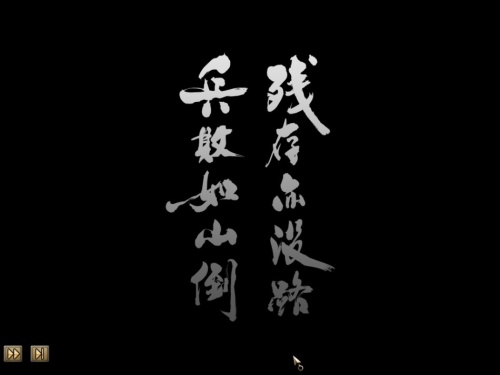 残存亦没路
兵敗如山倒